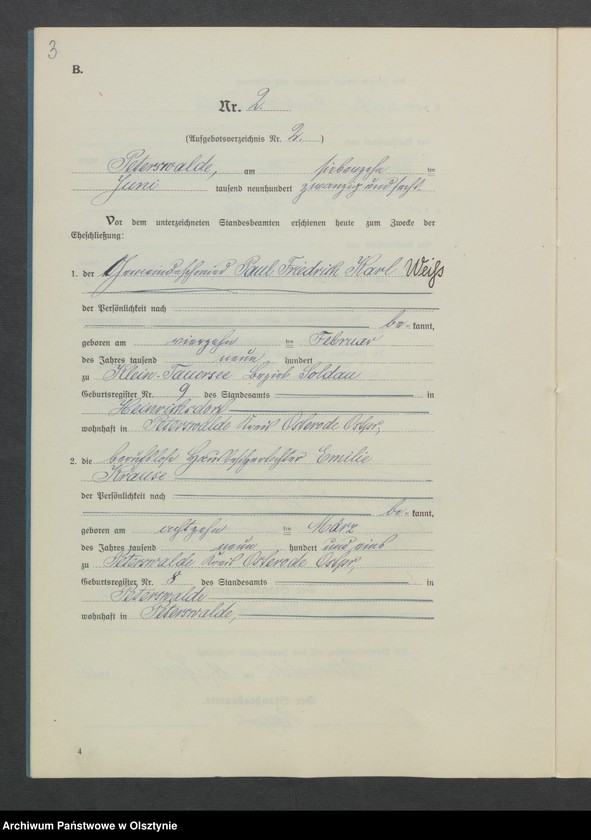 3
B.
Nr. 2.
(Aufgebotsverzeichnis Nr. 2.)
Peterswalde, am siebenzehn ten
Juni tausend neunhundert zwanzig und sechs.
Vor dem unterzeichneten Standesbeamten erschienen heute zum Zwecke der
Eheschließung:
1. der Gemeindeschmied Paul Friedrich Karl Weiß
der Persönlichkeit nach
be=kannt,
geboren am vierzehn ten Februar
des Jahres tausend neun hundert
zu Klein-Tauersee Bezirk Soldau
Geburtsregister Nr. 9 des Standesamts in
Heinrichsdorf
wohnhaft in Peterswalde Kreis Osterode Ostpr,
2. die berufslose Emilie
Krause
der Persönlichkeit nach
be=kannt,
geboren am achtzehn ten März
des Jahres tausend neun hundert und eins
zu Peterswalde Kreis Osterode Ostpr,
Geburtsregister Nr. 8 des Standesamts in
Peterswalde
wohnhaft in Peterswalde,
4
Archiwum Państwowe w Olsztynie